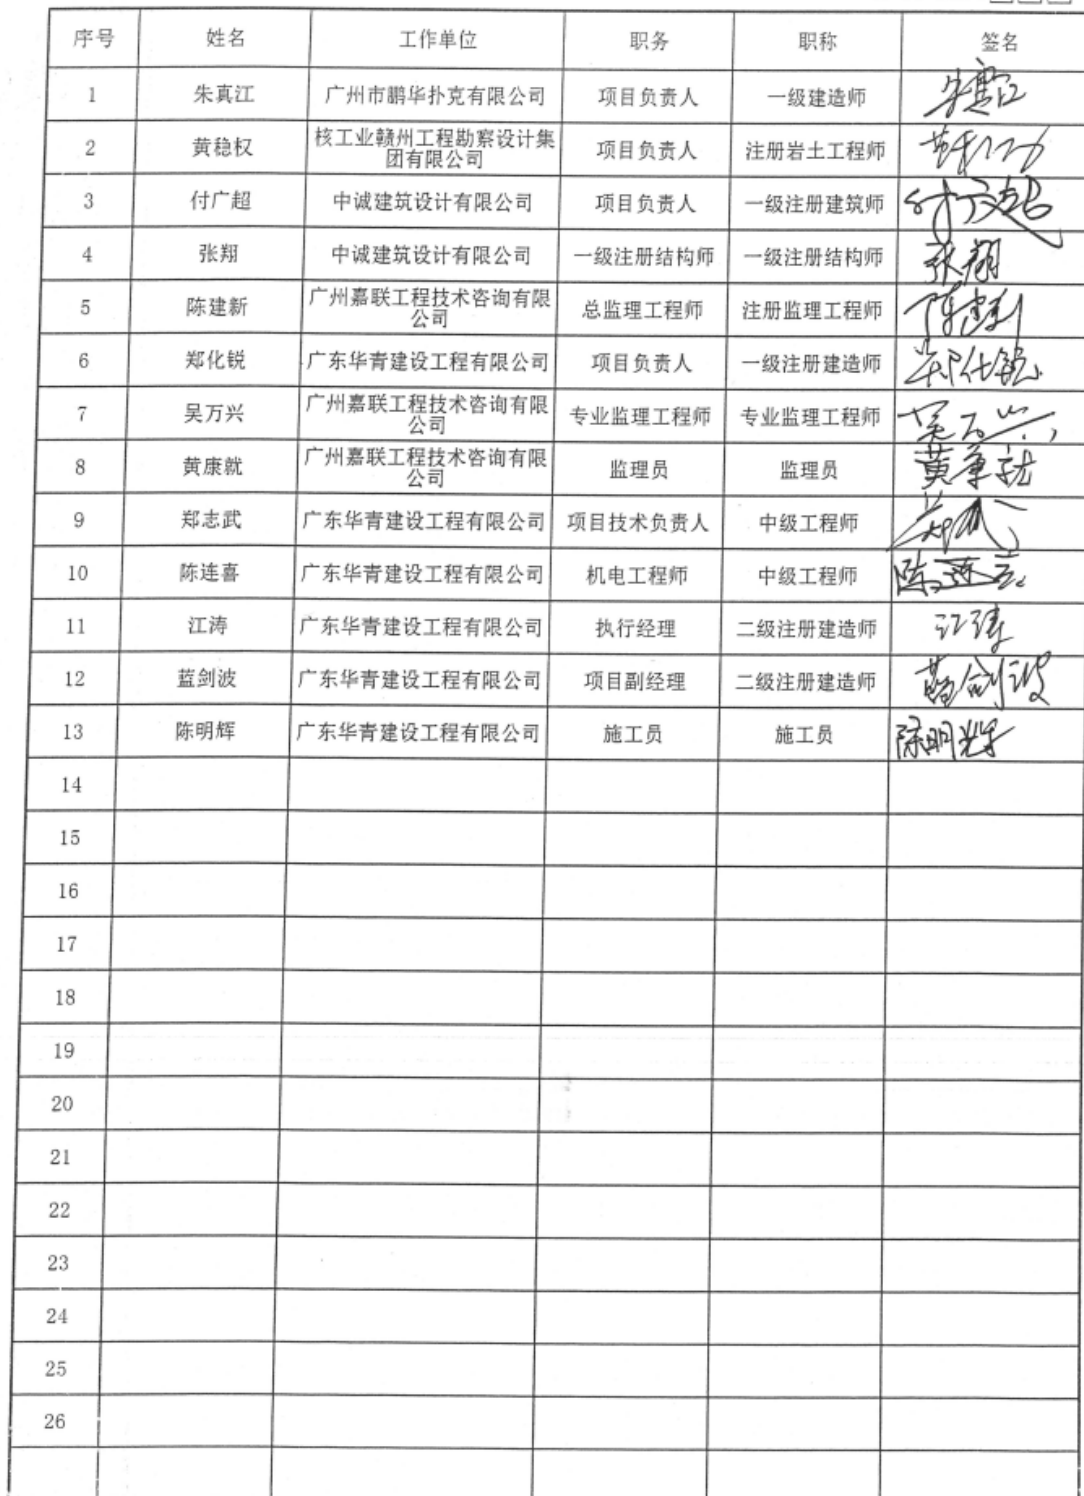 序号 姓名 工作单位 职务 职称 签名
1 朱真江 广州市鹏华扑克有限公司 项目负责人 一级建造师
2 黄稳权 核工业赣州工程勘察设计集
团有限公司 项目负责人 注册岩土工程师
3 付广超 中诚建筑设计有限公司 项目负责人 一级注册建筑师 付广超
4 张翔 中诚建筑设计有限公司 一级注册结构师 一级注册结构师 张翔
5 陈建新 广州嘉联工程技术咨询有限
公司 总监理工程师 注册监理工程师 陈建新
6 郑化锐 广东华青建设工程有限公司 项目负责人 一级注册建造师
7 吴万兴 广州嘉联工程技术咨询有限
公司 专业监理工程师 专业监理工程师 吴万兴
8 黄康就 广州嘉联工程技术咨询有限
公司 监理员 监理员 黄康就
9 郑志武 广东华青建设工程有限公司 项目技术负责人 中级工程师
10 陈连喜 广东华青建设工程有限公司 机电工程师 中级工程师 陈连喜
11 江涛 广东华青建设工程有限公司 执行经理 二级注册建造师 江涛
12 蓝剑波 广东华青建设工程有限公司 项目副经理 二级注册建造师 蓝剑波
13 陈明辉 广东华青建设工程有限公司 施工员 施工员 陈明辉
14
15
16
17
18
19
20
21
22
23
24
25
26